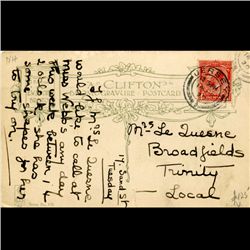 CLIFTON
GRAVURE POSTCARD
JERSEY
17 Sand St
Tuesday
If Mrs Le Quesne
would like to call at
Miss Webb's any day
This week between
she has
some shapes for her
to try on.
Mrs Le Quesne
Broadfields
Trinity
Local